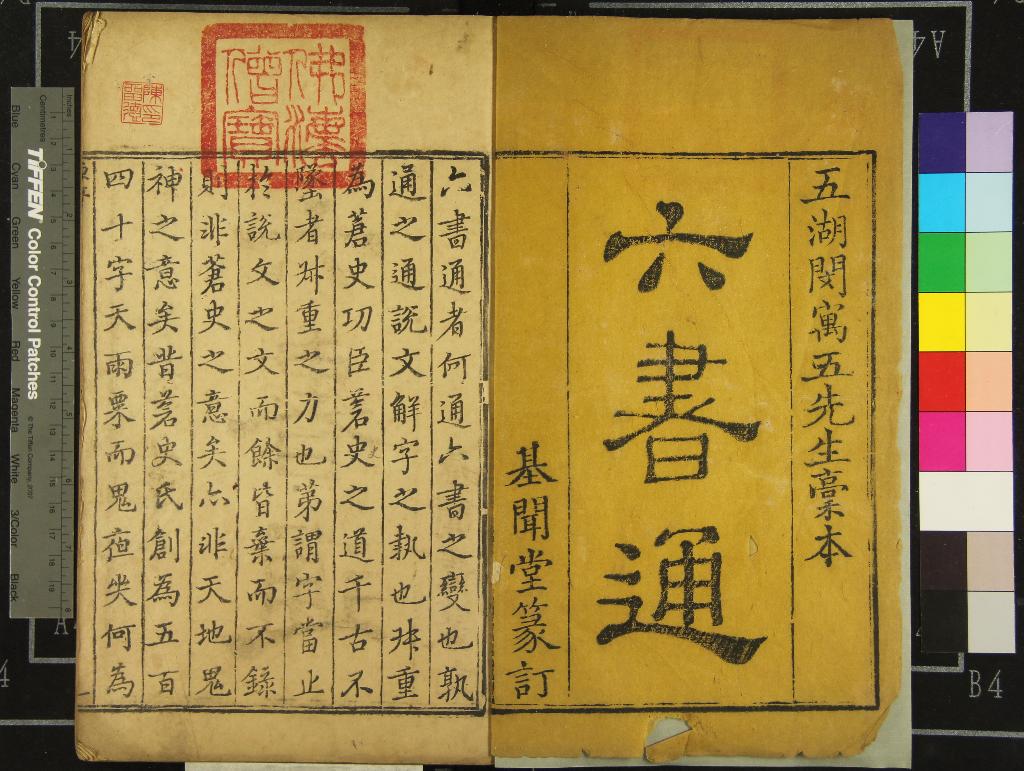 五湖閔寓五先生槀本
六書通
基聞堂篆訂
六書通者何通六書之變也孰
通之通說文解字之執也丗重
為蒼史功臣蒼史之道千古不
墜者丗重之力也第謂字當止
於說文之文而餘皆棄而不錄
則非蒼史之意矣亦非天地鬼
神之意矣昔蒼史氏創為五百
四十字天雨粟而鬼夜哭何為
佛漢僧寶
陳印
閱德
TIFFEN Color Control Patches
© The Tiffen Company, 2007
Centimetres
Inches
Blue Cyan Green Yellow Red Magenta White 3/Color Black
A4
B4